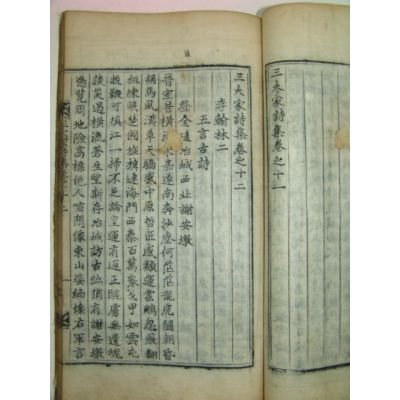 三大家詩集卷之十一
三大家詩集卷之十二
李翰林二
五言古詩
登金陵冶城西北謝安墩
晉室昔橫潰永嘉遂南奔沙塵何茫茫龍虎鬪朝昏
胡馬風漢草天驕蹙中原哲匠感頹運雲鵬忽飛翻
組練照楚國旌旗連海門西秦百萬衆戈甲如雲屯
投鞭可填江一掃不足論皇運有返正醜虜無遺魂
談笑遏橫流蒼生望斯存冶城訪古跡猶有謝安墩
憑覽周地險高標絕人喧想像東山姿緬懷右軍言